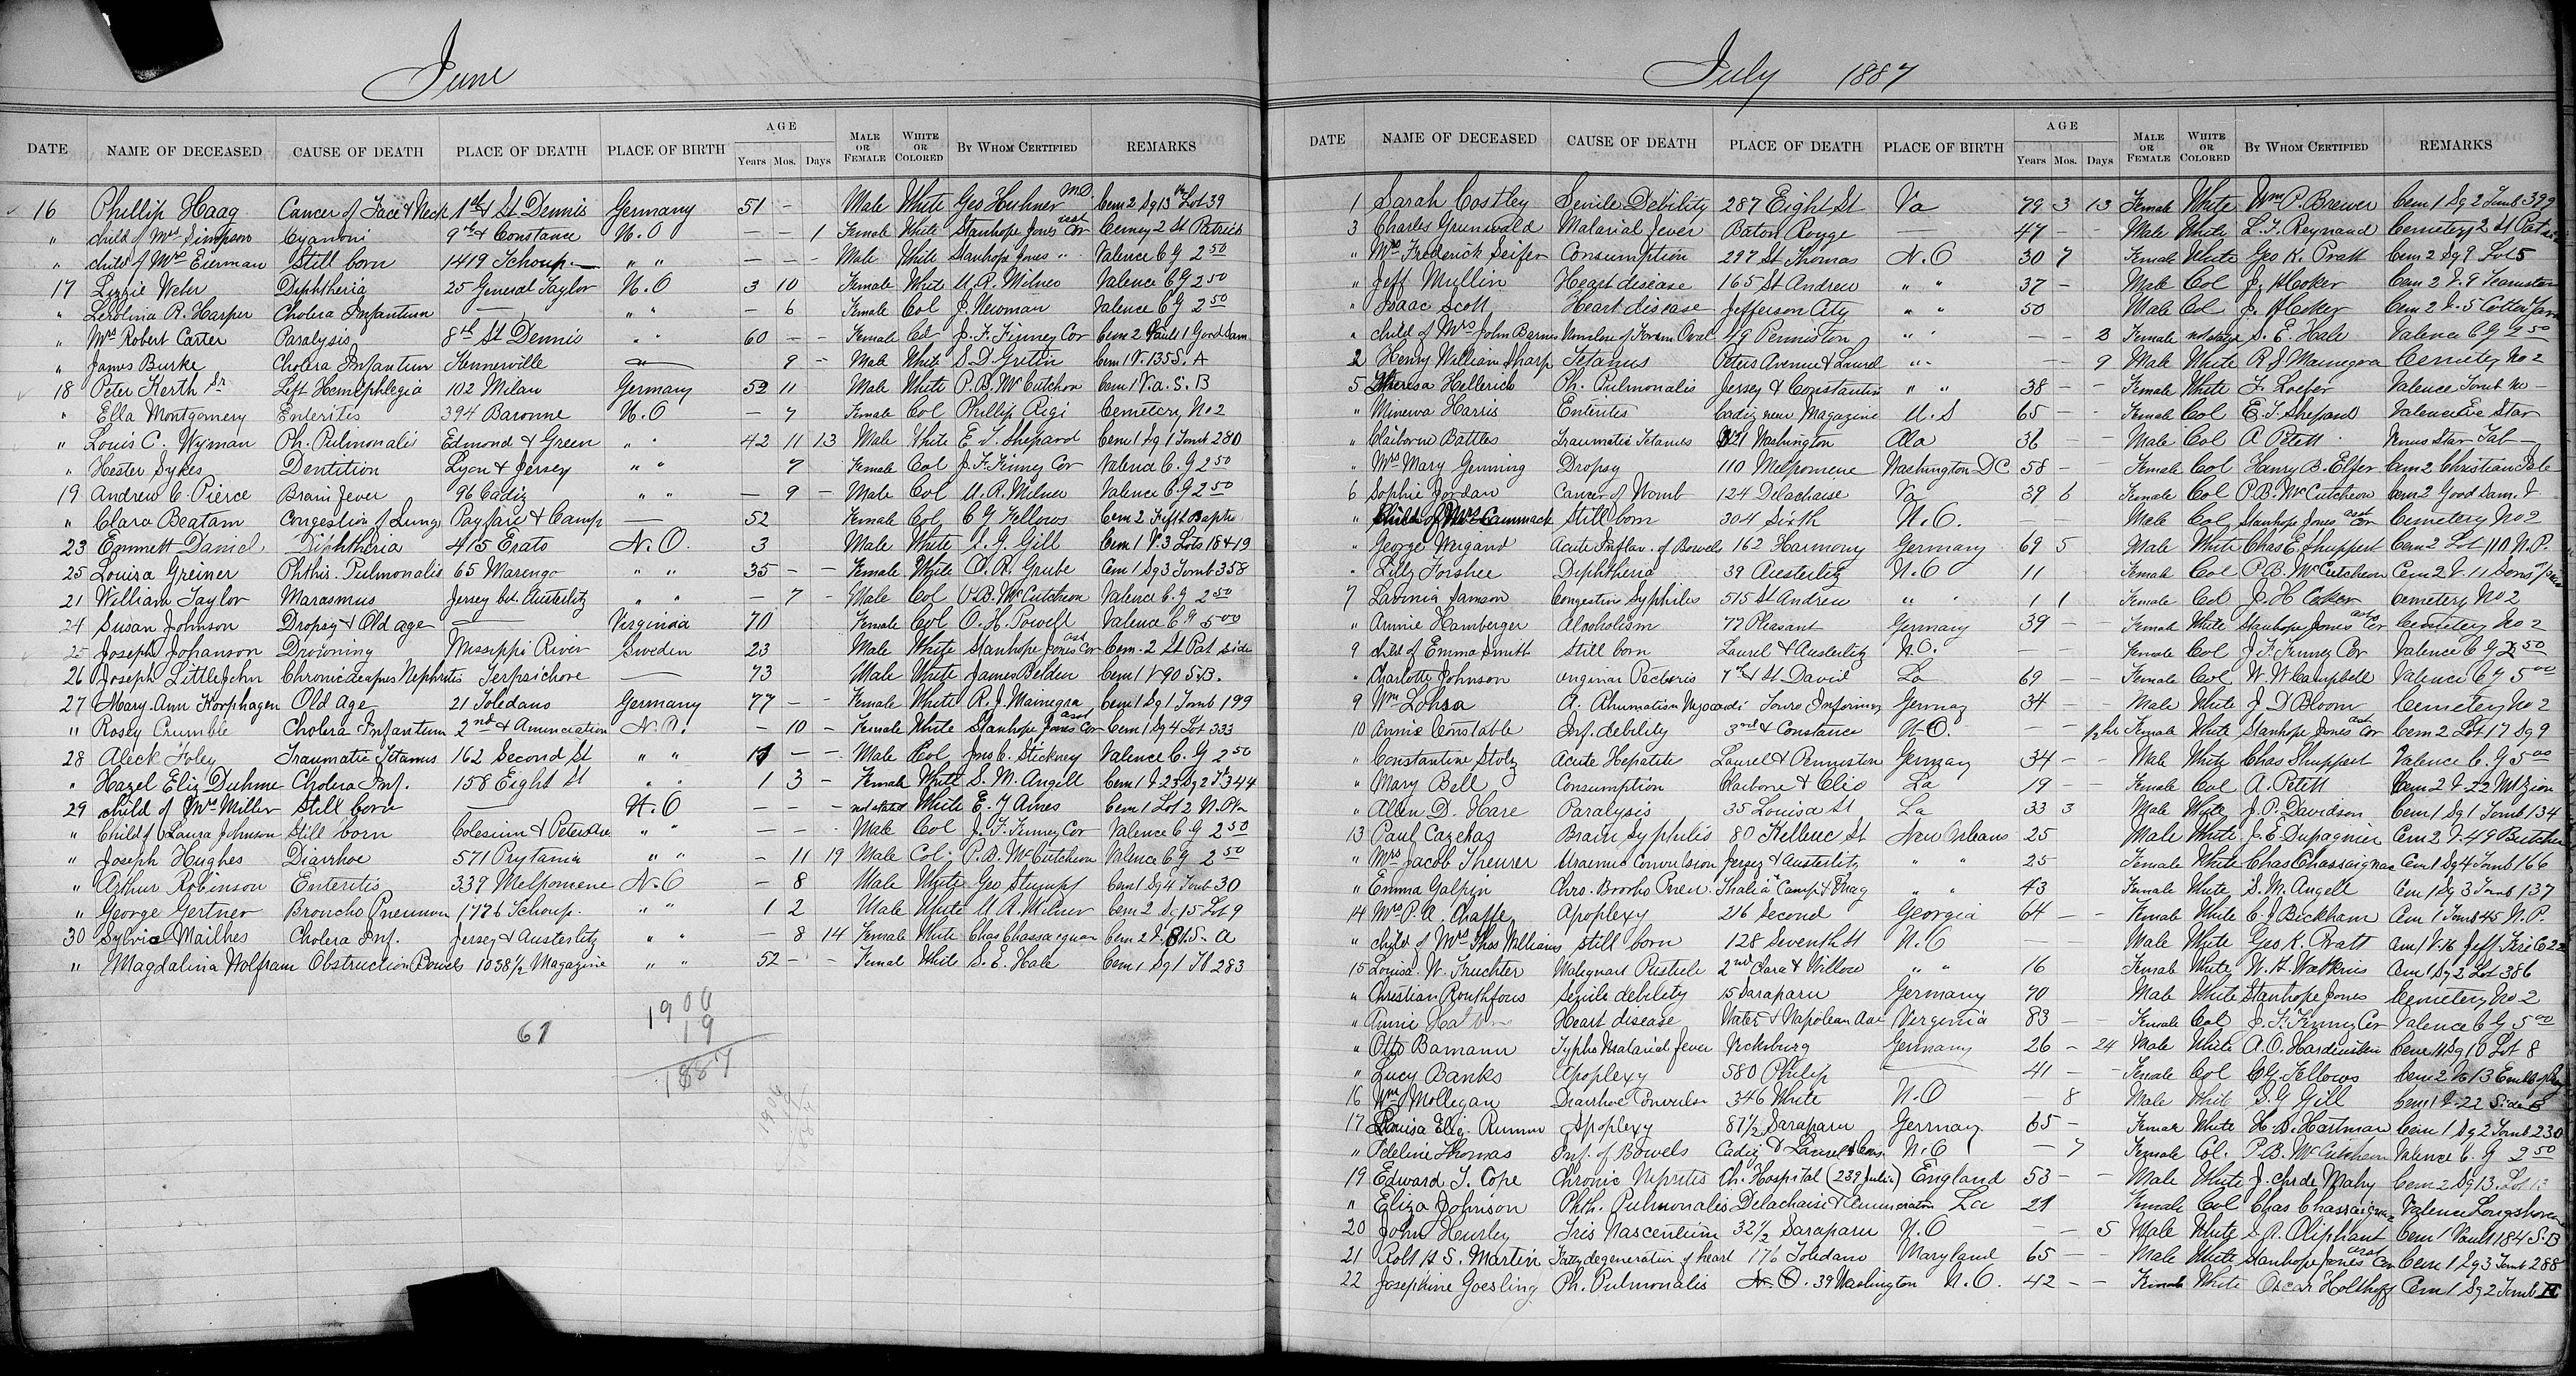 June
DATE NAME OF DECEASED CAUSE OF DEATH PLACE OF DEATH PLACE OF BIRTH AGE Years Mos. Days MALE OR FEMALE WHITE OR COLORED BY WHOM CERTIFIED REMARKS
16 Phillip Haag Cancer of Face & Neck 1st & St. Dennis Germany 51 - Male White Geo Huhner M.D. Cem 2 Sq 13 Lot 39
" child of Mrs Simpson Cyanoni 9th & Constance N.O — — 1 Female White Stanhope Jones asst Cor Cemey 2 St Patrick
" child of Mrs Eierman Still born 1419 Tchoup. — " " — — - Male White Stanhope Jones " Valence C G 2 50
17 Lizzie Weber Diphtheria 25 General Taylor N.O 3 10 Female White U.R. Milner Valence C G 2 50
" Lerolina R. Harper Cholera Infantum — " " - 6 Female Col J. Newman Valence C G 2 50
" Mrs Robert Carter Paralysis 8th St Dennis " " 60 — - Female Col J. F. Finney Cor Cem 2 Vault 1 Good Sam
" James Burke Cholera Infantum Kennerville — 9 - Male White S D Gretin Cem 1 V. 135 S. A
18 Peter Kerth Sr Left Hemiphlegia 102 Milan Germany 52 11 Male White P. B. McCutchon Cem 1 V. a. S. B
" Ella Montgomery Enteritis 394 Baronne N.O — 7 Female Col Phillip Rigi Cemetery No 2
" Louis C. Wyman Ph. Pulmonalis Edmond & Green " " 42 11 13 Male White E T. Shepard Cem 1 Sq 1 Tomb 280
" Hester Sykes Dentition Lyon & Jersey " " 7 Female Col J. F. Finney Cor Valence C. G 2 50
19 Andrew C. Pierce Brain fever 96 Cadiz " " — 9 — Male Col U. R. Milner Valence C. G 2 50
" Clara Beatam Congestion of Lungs Payfare & Camp — 52 Female Col C G Fellows Cem 2 Fifth Baptis
23 Emmett Daniel Diphtheria 415 Erato N. O. 3 Male White S. G. Gill Cem 1 V. 3 Lots 18 & 19
25 Louisa Greiner Phthis. Pulmonalis 65 Marengo " " 35 - - Female White A. R. Grube Cem 1 Sq 3 Tomb 358
21 William Taylor Marasmus Jersey bet. Austerlitz " " — 7 - Male Col P.B. McCutcheon Valence C. G 2 50
24 Susan Johnson Dropsy & Old age — Virginia 70 Female Col O. H. Powell Valence C G 5 00
25 Joseph Johanson Drowning Missippi River Sweden 23 Male White Stanhope Jones asst Cor Cem. 2 St Pat side
26 Joseph LittleJohn Chronic Nephritis Terpsichore — 73 Male White James Belden Cem 1 V 40 S.B.
27 Mary Ann Korphagen Old Age 21 Toledano Germany 77 — - Female White R. J. Mainegra Cem 1 Sq 1 Tomb 199
" Rosey Crumble Cholera Infantum 2nd & Anunciation N. O. — 10 — Female White Stanhope Jones asst Cor Cem 1 Sq 4 Lot 333
28 Aleck Foley Traumatic Tetanus 162 Second St " " 11 — — Male Col Jos C. Stickney Valence C. G 2 50
" Hazel Eliz Duhme Cholera Inf. 158 Eight St " " 1 3 - Female White S. M. Angell Cem 1 V. 23 Sq 2 Tb 344
29 child of Mrs Miller Still born — N. O — — - not stated White E. Y Ames Cem 1 Lot 2 N. Pla
" Child of Laura Johnson Still born Coliseum & Peters Ave " " — — Male Col J. F. Finney Cor Valence C G 2 50
" Joseph Hughes Diarrhoe 571 Prytania " " - 11 19 Male Col. P. B. McCutcheon Valence C G 2 50
" Arthur Robinson Enteritis 339 Melpomene N. O — 8 Male White Geo Stumpf Cem 1 Sq 4 Tomb 30
" George Gertner Broncho Pneumon 1776 Tchoup. " " 1 2 Male White U R. Milner Cem 2 Sq 15 Lot 9
30 Sylvie Mailhes Cholera Inf. Jersey & Austerlitz " " — 8 14 Female White Chas Chassaignac Cem 2 V. 81 S. a
" Magdalina Wolfram Obstruction Bowels 1038 1/2 Magazine " " 52 - - Femal White S. E. Hale Cem 1 Sq 1 Tb 283
61
1900
19
1887
July 1887
DATE NAME OF DECEASED CAUSE OF DEATH PLACE OF DEATH PLACE OF BIRTH AGE Years Mos. Days MALE OR FEMALE WHITE OR COLORED BY WHOM CERTIFIED REMARKS
1 Sarah Costley Senile Debility 287 Eight St Va 79 3 13 Female White Wm P. Brewer Cem 1 Sq 2 Tomb 399
3 Charles Grunwald Malarial fever Baton Rouge — 47 — - Male White L. F. Reynaud Cemetery 2 St Pat
" Mrs Frederick Seifer Consumption 297 St Thomas N. O 30 7 Female White Geo K. Pratt Cem 2 Sq 9 Lot 5
" Jeff Mullin Heart disease 165 St Andrew " " 37 - Male Col J. H Coker Cem 2 V. 9 Teamsters
" Isaac Scott Heart disease Jefferson City " " 50 Male Col J. H Coker Cem 2 V- 5 Cotton Yard
" child of Mrs John Barnes Nonclose of Foram Oval 49 Penniston " " — - 3 Female not stated S. E. Hale Valence C G 2 50
2 Henry William Sharp Tetanus Peters Avenue & Laurel " " — - 9 Male White R J Mainegra Cemetery No 2
5 Theresa Hellerich Ph. Pulmonalis Jersey & Constantin " " 38 — - Female White F. Loeber Valence Tomb No -
" Minerva Harris Enterites Cadiz near Magazine U. S 65 - - Female Col E. T. Shepard Valence Eve Star
" Claiborne Battles Traumatic Tetanus 21 Washington Ala 36 - Male Col A Petett Venus Star Tab —
" Mrs Mary Genning Dropsy 110 Melpomene Washington DC 58 - - Female Col Henry B. Elfer Cem 2 Christian
6 Sophie Jordan Cancer of Womb 124 Delachaise Va 39 6 Female Col P. B. McCutcheon Cem 2 Good Sam. V
" Child of Mrs Cammack Still born 304 Sixth N. O. — — Male Col Stanhope Jones asst Cor Cemetery No 2
" George Weigand Acute Inflam. of Bowels 162 Harmony Germany 69 5 Male White Chas E. Shuppert Cem 2 Lot 110 N. P.
" Lilly Forshee Diphtheria 39 Austerlitz N. O 11 Female Col P. B. McCutcheon Cem 2 V. 11 Sons of
7 Lavinia Samson Congestive Syphilis 515 St Andrew " " 1 1 Female Col J. H Coker Cemetery No 2
" Annie Hamberger Alcoholism 77 Pleasant Germany 39 - Female White Stanhope Jones asst Cor Cemetery No 2
9 child of Emma Smith Still born Laurel & Austerlitz N. O. — Female Col J. F. Finney Cor Valence C G 2 50
" Charlotte Johnson anginar Pectoris 7th & St David La 69 — - Female Col W. W Campbell Valence C G 5 00
9 Wm Lohsa A. Rhumatism Myocardi Touro Infirmary Germay 34 - Male White J. D Bloom Cemetery No 2
10 Annie Constable Inf. debility 3rd & Constance N. O. — — 1/2 hr Female White Stanhope Jones asst Cor Cem 2 Lot 17 Sq 9
" Constantine Stolz Acute Hepatite Laurel & Penniston Germany 34 - - Male White Chas Shuppert Valence C. G 5 00
" Mary Bell Consumption Claiborne & Clio La 19 - Female Col A. Petett Cem 2 V. 22 Mt Zion
" Allen D. Hare Paralysis 35 Louisa St La 33 3 Male White J. P. Davidson Cem 1 Sq 1 Tomb 134
13 Paul Cazehas Brain Syphilis 80 Kellerec St New Orleans 25 Male White J. E. Dupaquier Cem 2 V. 49 Butcher
" Mrs Jacob Theurer Uraemic Convulsion Jersey & Austerlitz " " 25 Female White Chas Chassaignac Cem 1 Sq 4 Tomb 166
" Emma Galpin Chro. Broncho Pneu. Thalia Camp & Mag " " 43 Female White S. M. Angell Cem 1 Sq 3 Tomb 137
14 Mrs P. A. Chaffe Apoplexy 216 Second Georgia 64 - - Female White C. J Bickham Cem 1 Tomb 45 N. P.
" child of Mrs Thos Williams still born 128 Seventh St N. O — Male White Geo K. Pratt Cem 1 V. 16 Jeff Fire Co 22
15 Louisa W. Fruchter Malignant Pustule 2nd Clara & Willow " " 16 Female White W. H. Watkins Cem 1 Sq 2 Lot 386
" Christian Routhfous Senile debility 15 Saraparu Germany 70 Male White Stanhope Jones Cemetery No 2
" Annie Heart disease Water & Napolean Ave Virginia 83 — - Female Col J. F. Finney Cor Valence C G 5 00
" Otto Bamann Typho Malarial fever Vicksburg Germany 26 - 24 Male White A. O. Hardenstein Cem 1 Sq 10 Lot 8
" Lucy Banks Apoplexy 580 Philip — 41 - - Female Col C. G. Fellows Cem 2 V. 13
16 Wm Molligan Diarrhoe Convulsn 346 White N. O — 8 Male White S. G Gill Cem 1 V. 22 Side B
17 Louisa Eliz. Rumm Apoplexy 87 1/2 Saraparu Germay 65 - Female White H. D. Hartman Cem 1 Sq 2 Tomb 230
" Adeline Thomas Inf. of Bowels Cadiz & Laurel & Cons N. O — 7 Female Col. P. B. McCutcheon Valence C. G 2 50
19 Edward T. Cope Chronic Nepritis Ch. Hospital (239 Julia) England 53 - - Male White J. chr de Mahy Cem 2 Sq 13. Lot 13
" Eliza Johnson Phth. Pulmonalis Delachaise & Annunciation La 21 Female Col Chas Chassaignac Valence Longshoremen
20 John Hurley Tris Nascentium 32 1/2 Saraparu N. O — - 5 Male White S. R. Oliphant Cem 1 Vault 184 S. B
21 Robt H S. Martin Fatty degeneration of heart 176 Toledano Maryland 65 - - Male White Stanhope Jones asst Cor Cem 1 Sq 3 Tomb 288
22 Josephine Goesling Ph. Pulmonalis N. O. 39 Washington N. O. 42 - - Female White Oscar Holthoff Cem 1 Sq 2 Tomb